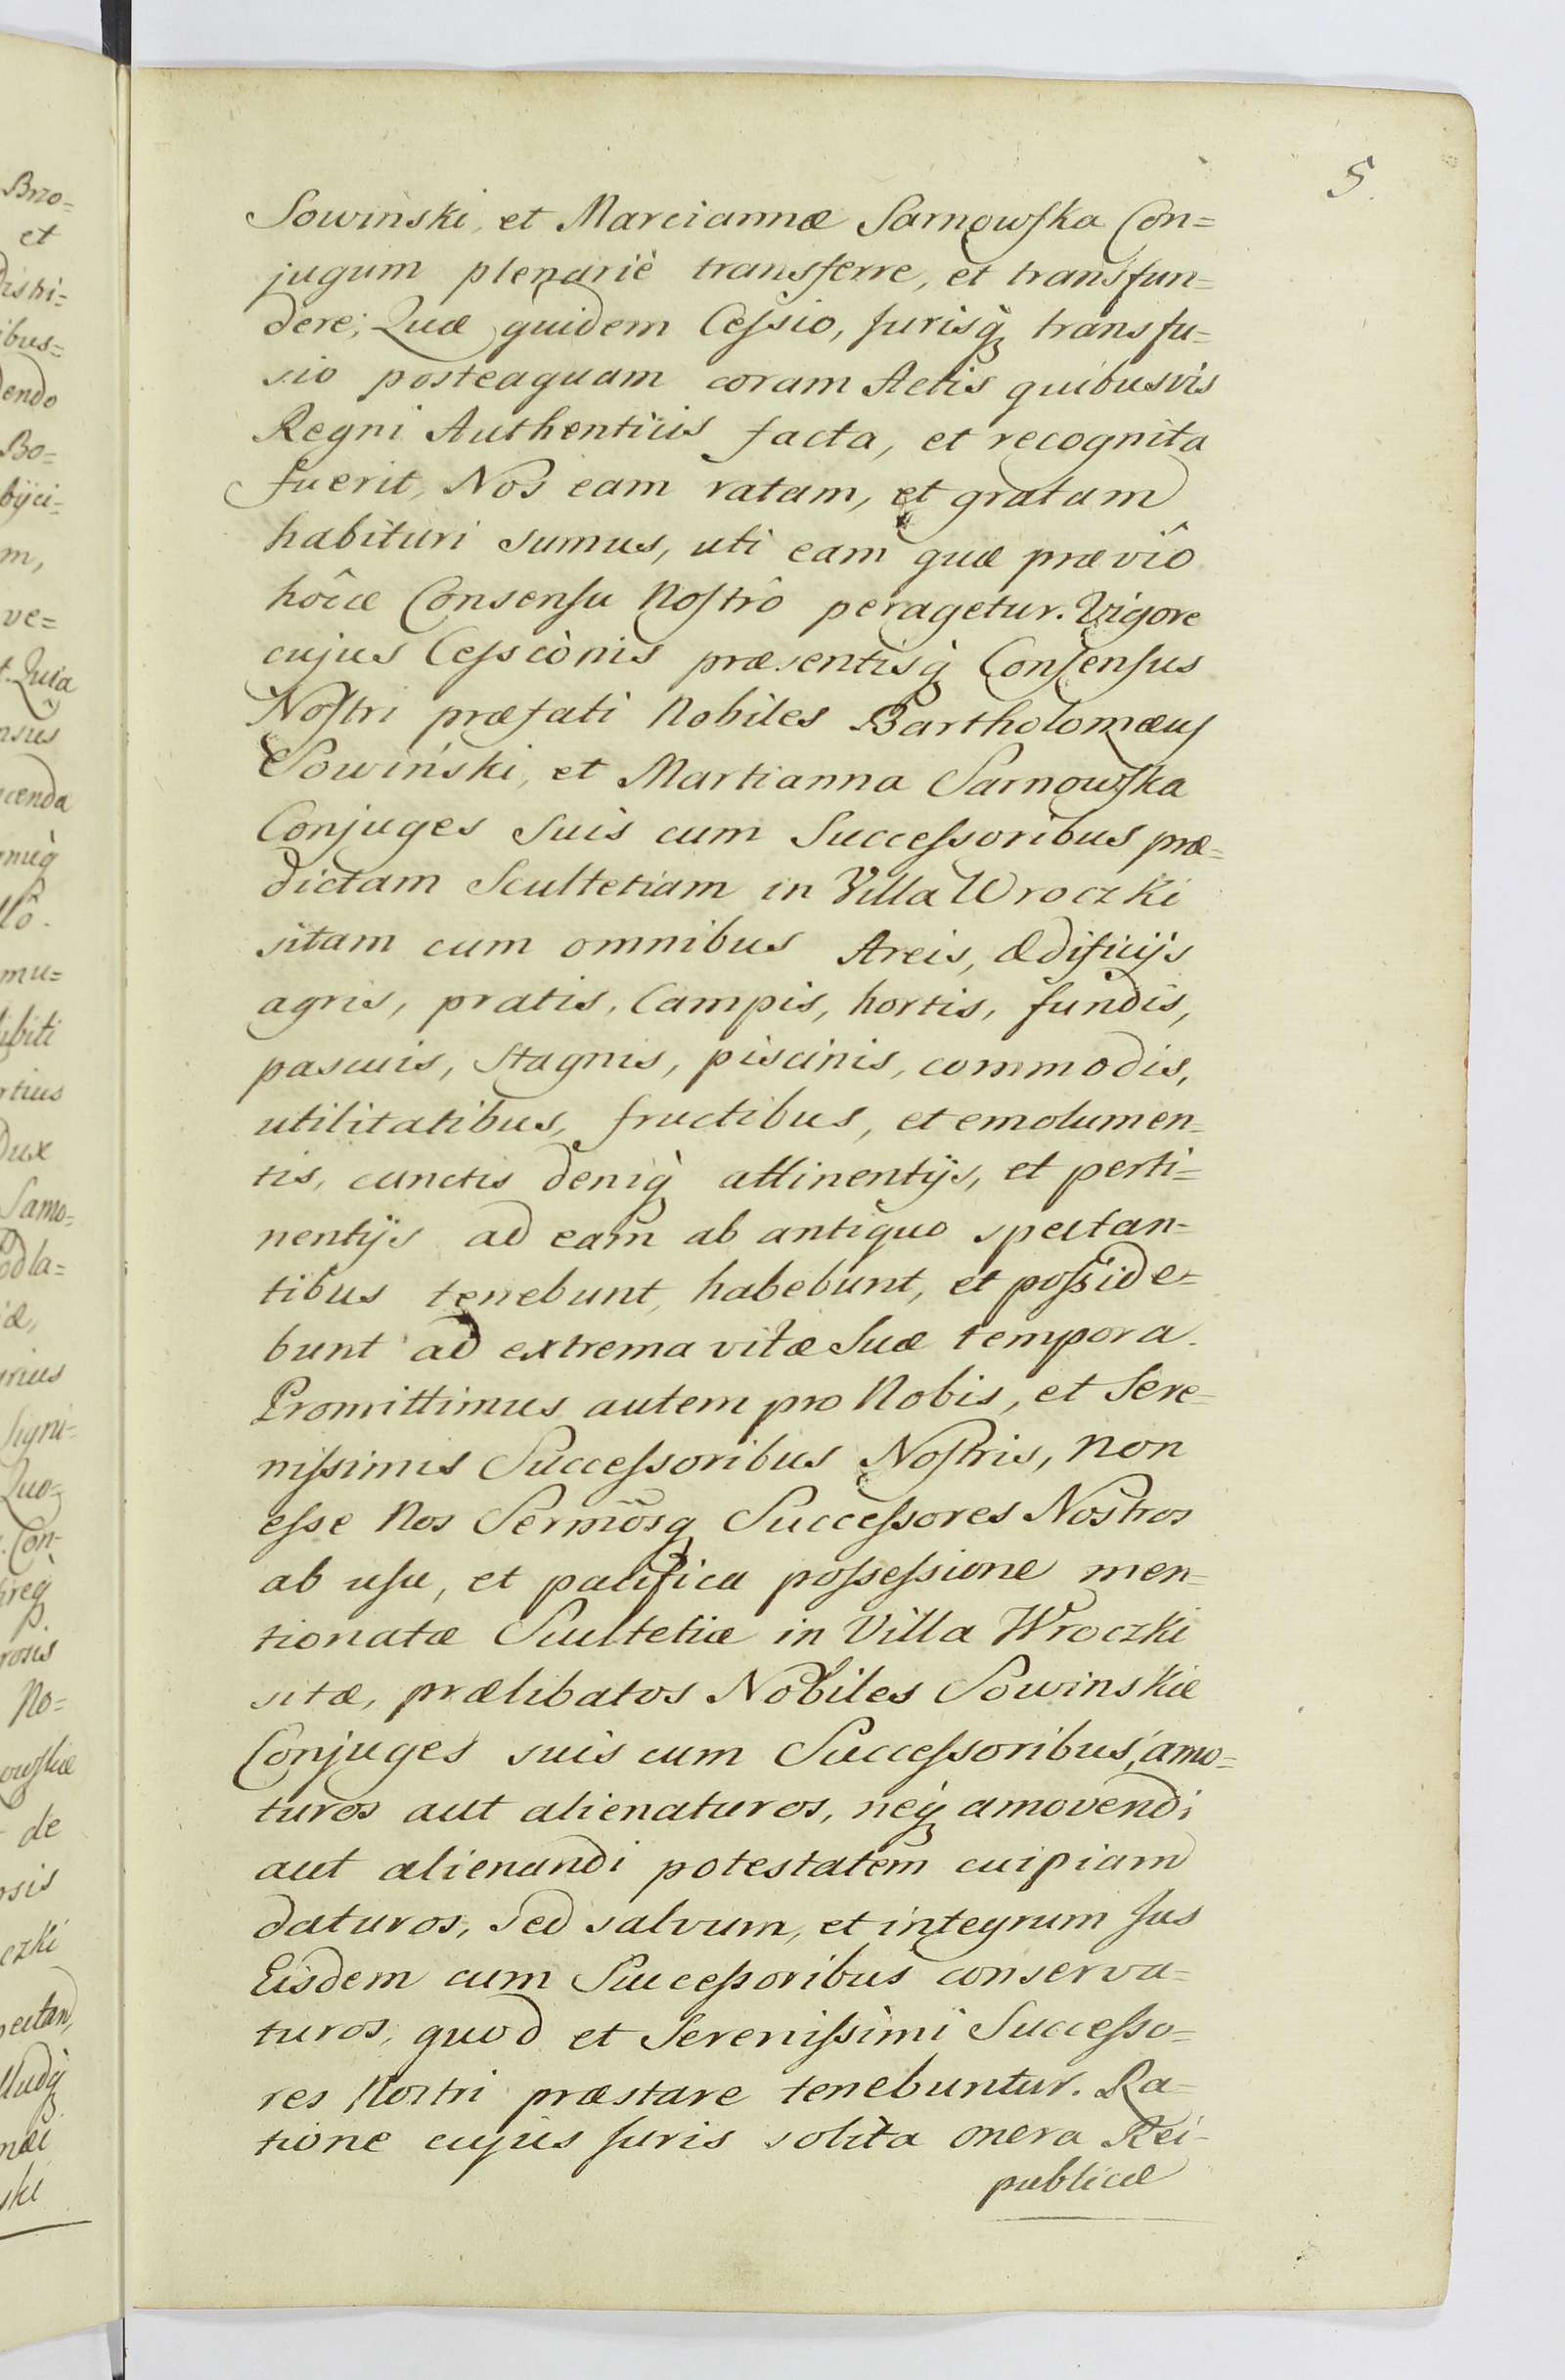 5.
Sowinski, et Marciannæ Sarnowſka Con=
jugum plenariè transferre, et transfun=
dere; Quæ quidem Ceſsio, Jurisq̀ transfu=
sio posteaquam coram Actis quibusvis
Regni Authenticis facta, et recognita
fuerit, Nos eam ratam, et gratam
habituri sumus, uti eam quæ præviô
hôcce Consenſu Noſtrô peragetur. Vigore
cujus Ceſsionis præsentisq̀ Conſenſus
Noſtri præfati Nobiles Bartholomæuſ
Sowiński, et Martianna Sarnowſka
Conjuges Suis cum Succeſsoribus præ=
dictam Scultetiam in Villa Wroczki
sitam cum omnibus Areis, Ædificijs
agris, pratis, Campis, hortis, fundis,
pascuis, Stagnis, piscinis, commodis,
utilitatibus, fructibus, et emolumen=
tis, cunctis deniq̀ attinentijs, et perti=
nentijs ad eam ab antiquo spectan=
tibus tenebunt, habebunt, et poſside=
bunt ad extrema vitæ Suæ tempora.
Promittimus autem pro Nobis, et Sere=
niſsimis Succeſsoribus Noſtris, non
eſse Nos Sermõsq Succeſsores Nostros
ab uſu, et pacifica poſseſsione men=
tionatæ Scultetiæ in Villa Wroczki
sitæ, prælibatos Nobiles Sowinskie
Conjuges suis cum Succeſsoribus, amo=
turos aut alienaturos, neq̀ amovendi
aut alienandi potestatem cuipiam
daturos, Sed salvum, et integrum Jus
Eisdem cum Succeſsoribus conserva=
turos, quod et Sereniſsimi Succeſso=
res Nostri præstare tenebuntur. Ra=
tione cujus Juris solita onera Rei=
publicæ
Brzo=
et
Distri=
ibus=
dendo
Bo=
bijci=
m,
ve=
t. Quia
nsus
cenda
lô.
mu=
ibiti
rtius
Dux
Samo=
odla=
iæ,
rius
Signi=
Quo=
. Con=
rosis
No=
owſkiæ
de
osis
czki
ectan,
ski